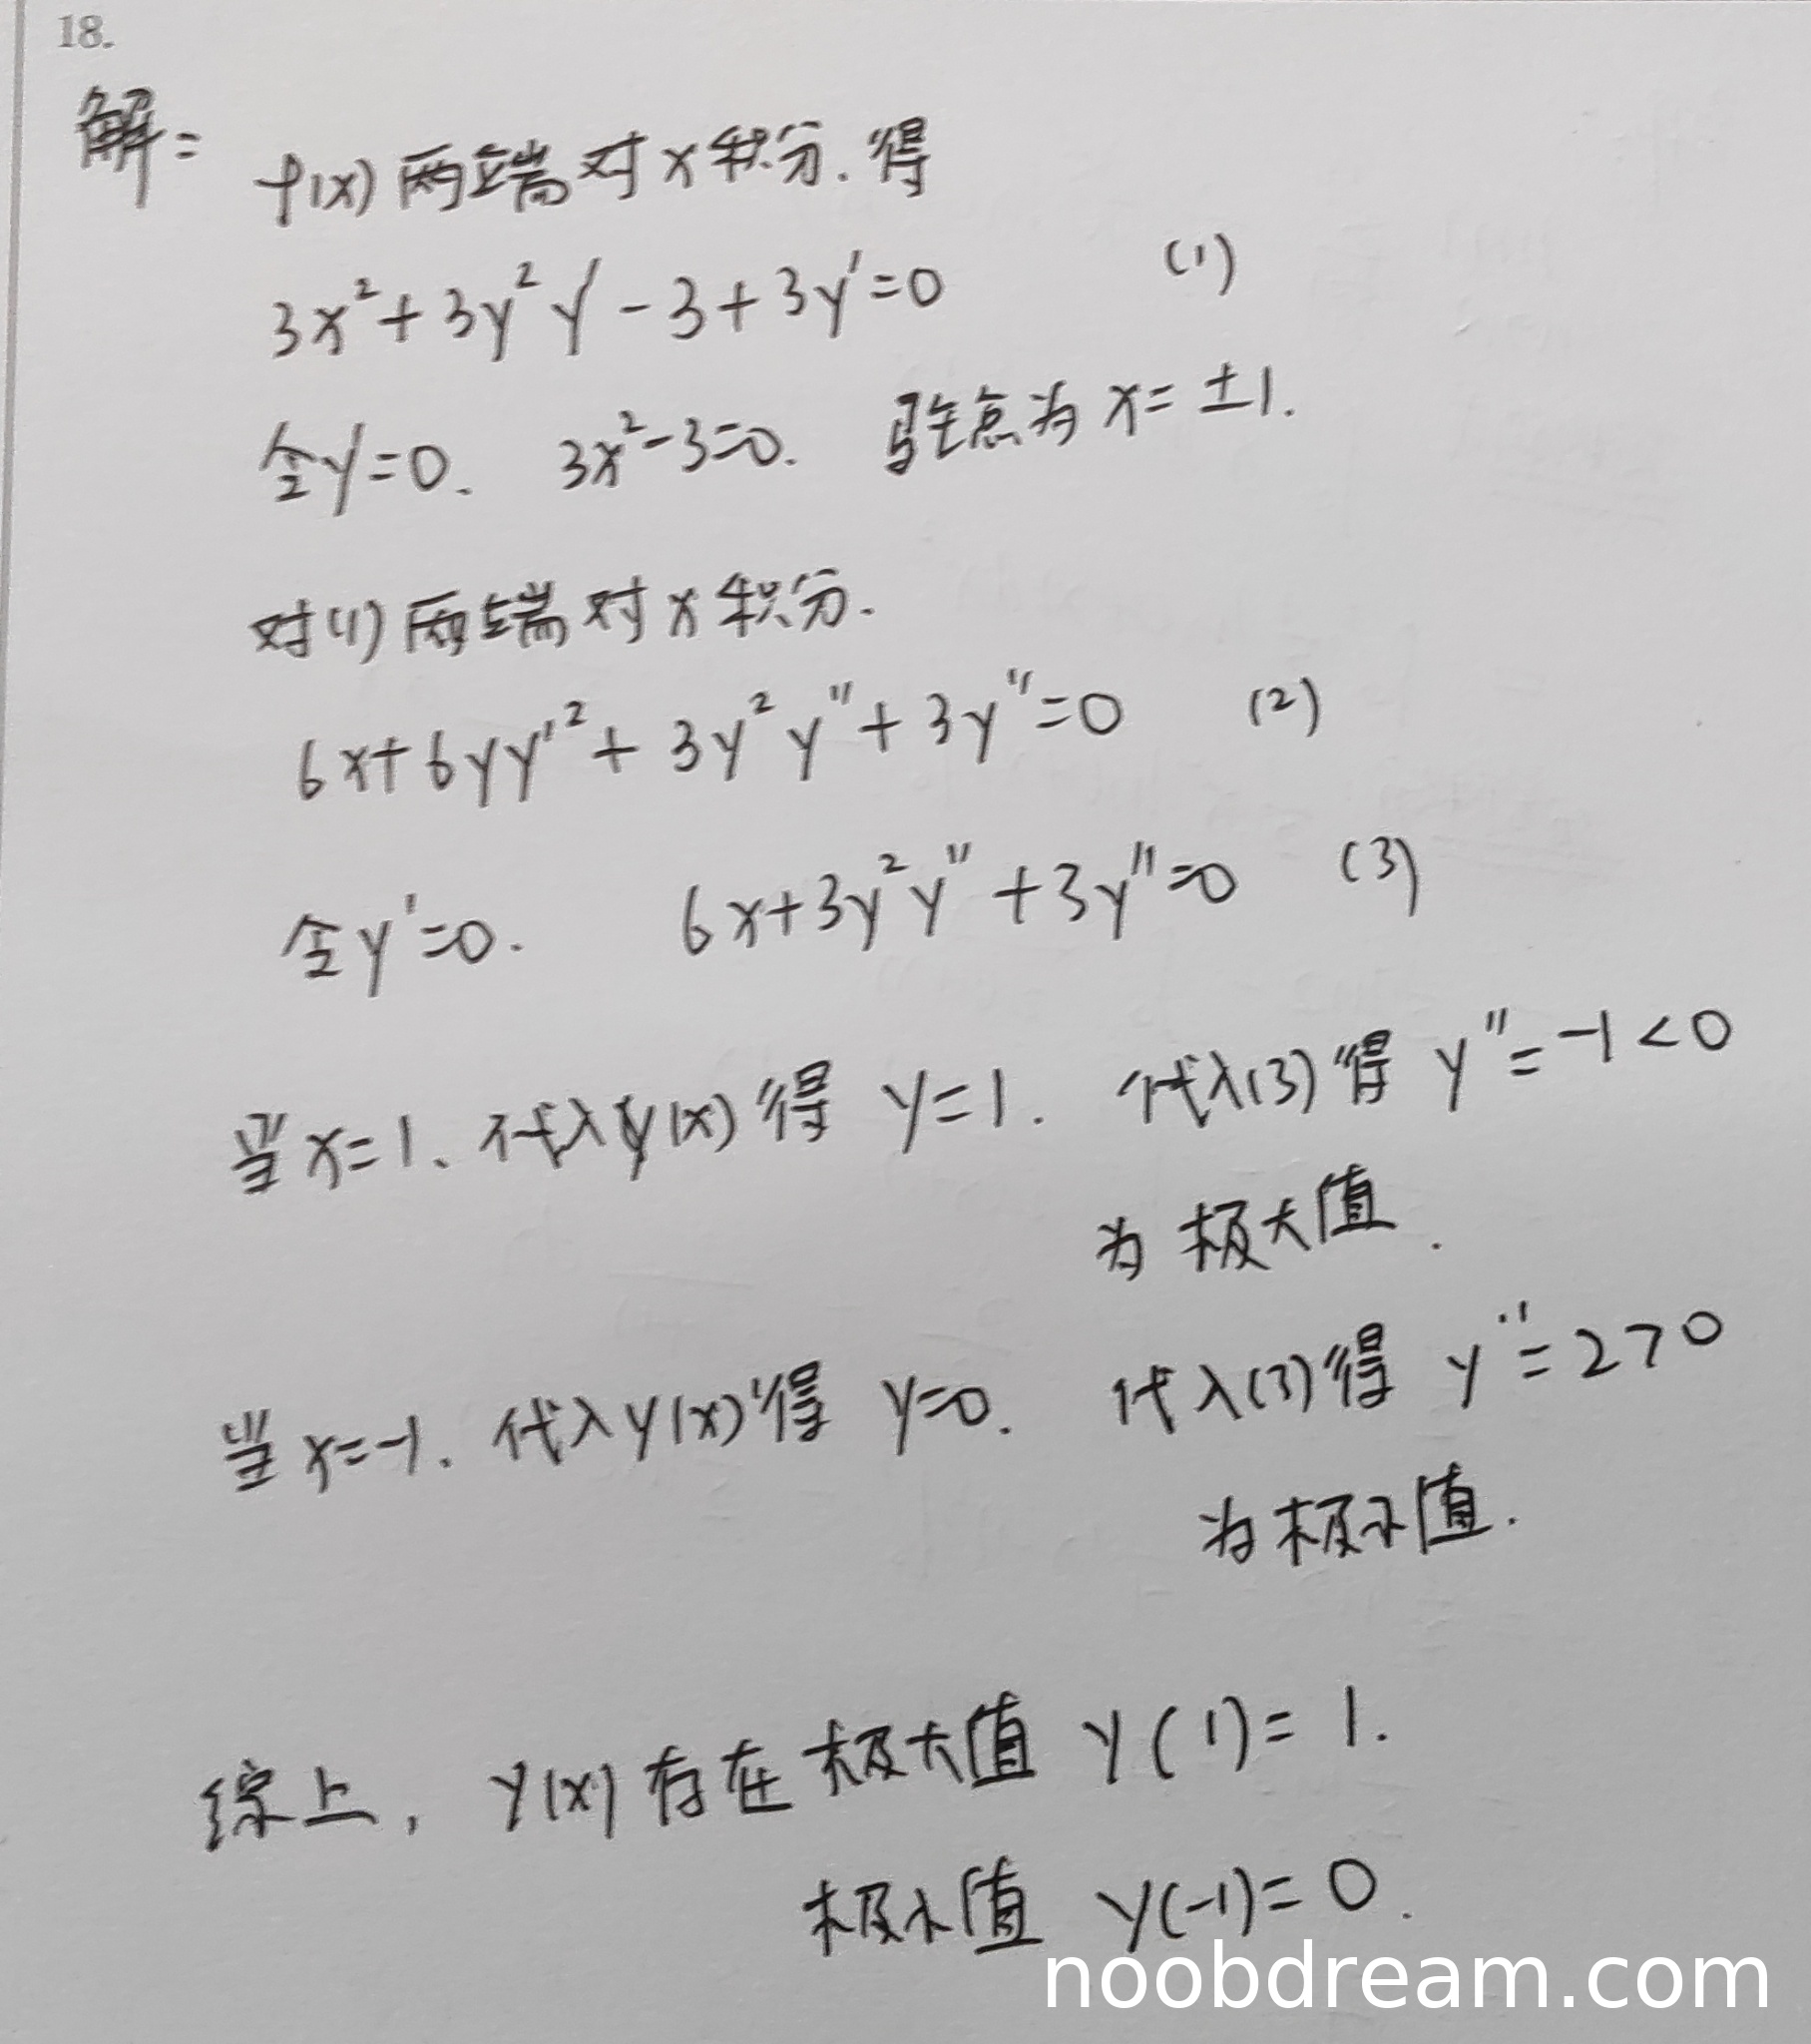 18.
解：
f(x)两端对x积分.得
3x²+3y²y′-3+3y′=0 (1)
令y′=0. 3x²-3=0. 驻点为x=±1.
对(1)两端对x积分.
6x+6yy′²+3y²y″+3y″=0 (2)
令y′=0. 6x+3y²y″+3y″=0 (3)
当x=1、代入y(x)得 y=1. 代入(3)得 y″=-1<0
为极大值.
当x=-1. 代入y(x)得 y=0. 代入(3)得 y″=2>0
为极小值.
综上, y(x)存在极大值 y(1)=1.
极小值 y(-1)=0.
noobdream.com